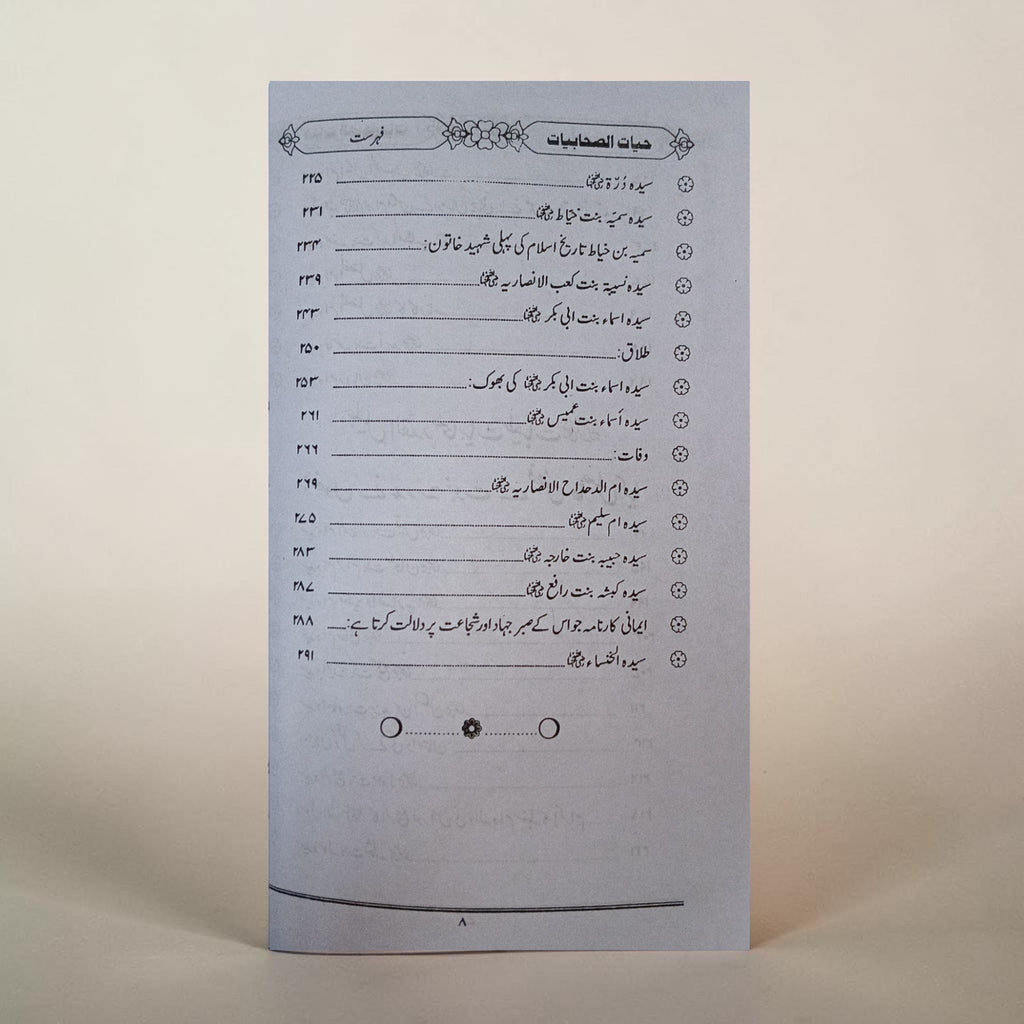 حیات الصحابیات فہرست
سیدہ دُرّۃ رضی اللہ عنہا ۲۲۵
سیدہ سمیّہ بنت خیّاط رضی اللہ عنہا ۲۳۱
سمیہ بن خیاط تاریخ اسلام کی پہلی شہید خاتون: ۲۳۴
سیدہ نسیبۃ بنت کعب الانصاریہ رضی اللہ عنہا ۲۳۹
سیدہ اسماء بنت ابی بکر رضی اللہ عنہا ۲۴۳
طلاق: ۲۵۰
سیدہ اسماء بنت ابی بکر رضی اللہ عنہا کی بھوک: ۲۵۳
سیدہ أسماء بنت عمیس رضی اللہ عنہا ۲۶۱
وفات: ۲۶۶
سیدہ ام الدحداح الانصاریہ رضی اللہ عنہا ۲۶۹
سیدہ ام سلیم رضی اللہ عنہا ۲۷۵
سیدہ حبیبہ بنت خارجہ رضی اللہ عنہا ۲۸۳
سیدہ کبشہ بنت رافع رضی اللہ عنہا ۲۸۷
ایمانی کارنامہ جو اس کے صبر جہاد اور شجاعت پر دلالت کرتا ہے: ۲۸۸
سیدہ الخنساء رضی اللہ عنہا ۲۹۱
۸